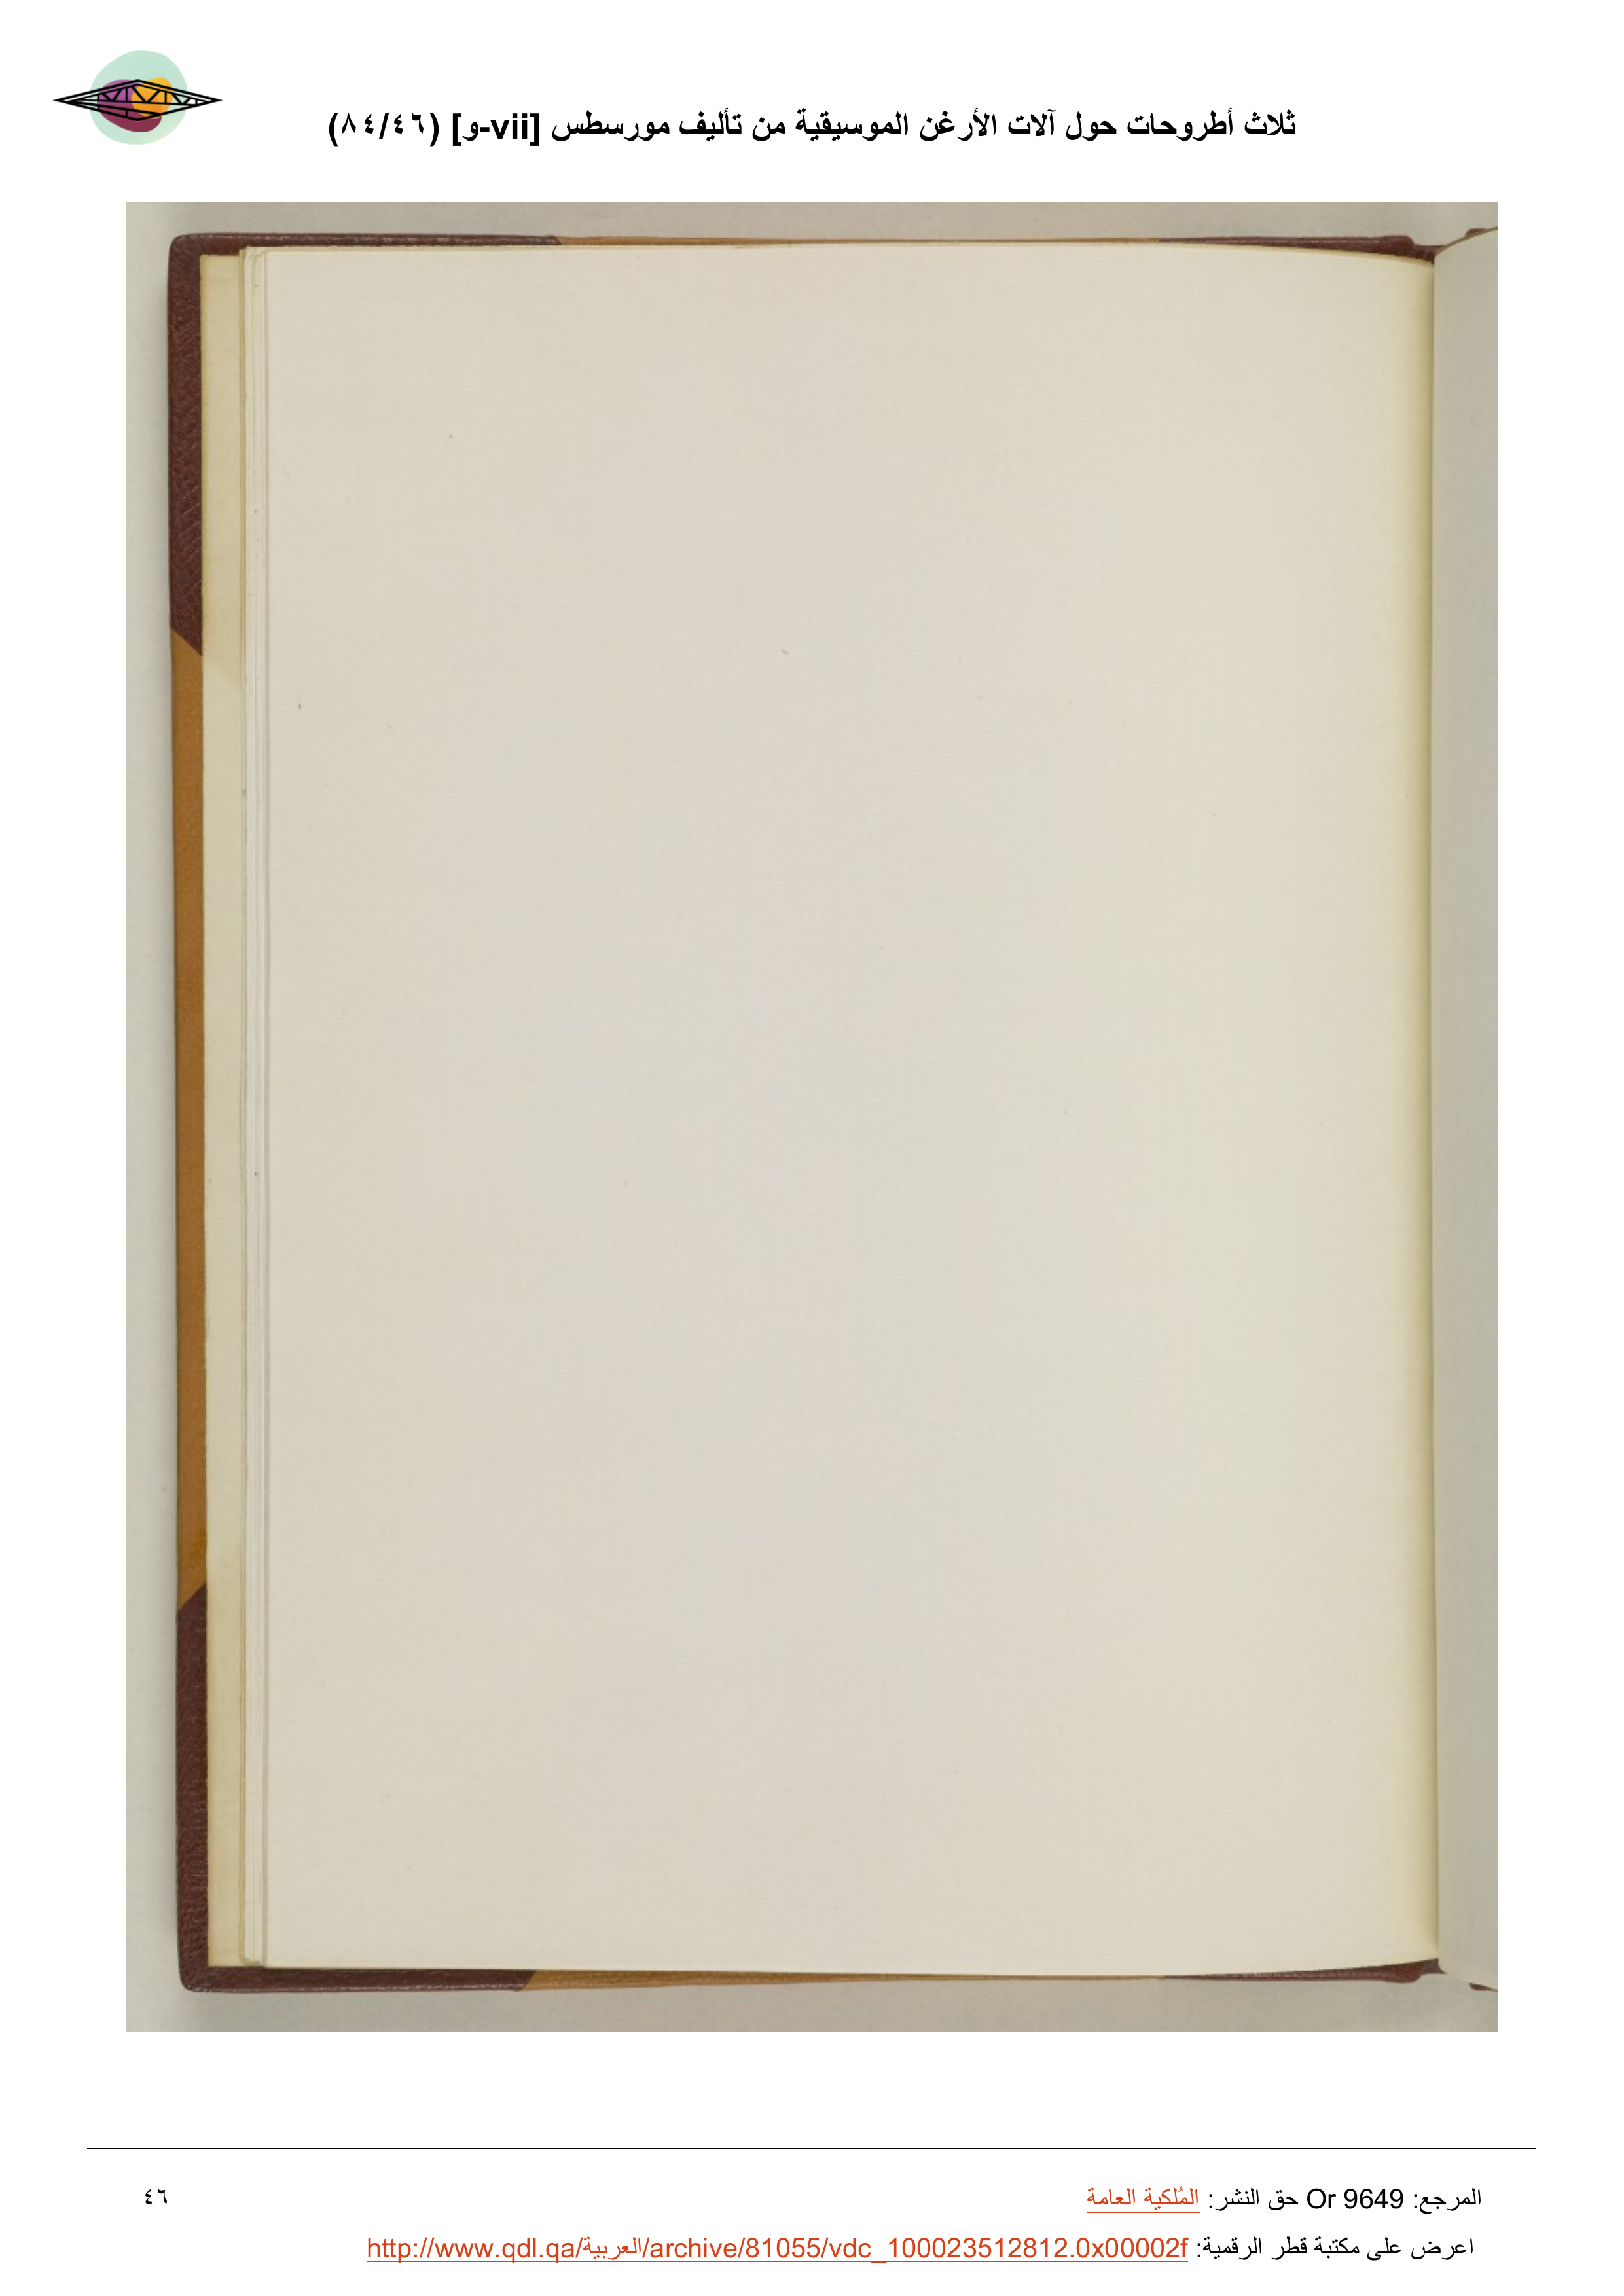 ثلاث أطروحات حول آلات الأرغن الموسيقية من تأليف مورسطس [vii-و] (٨٤/٤٦)
المرجع: Or 9649 حق النشر: المُلكية العامة
٤٦
اعرض على مكتبة قطر الرقمية: http://www.qdl.qa/العربية/archive/81055/vdc_100023512812.0x00002f